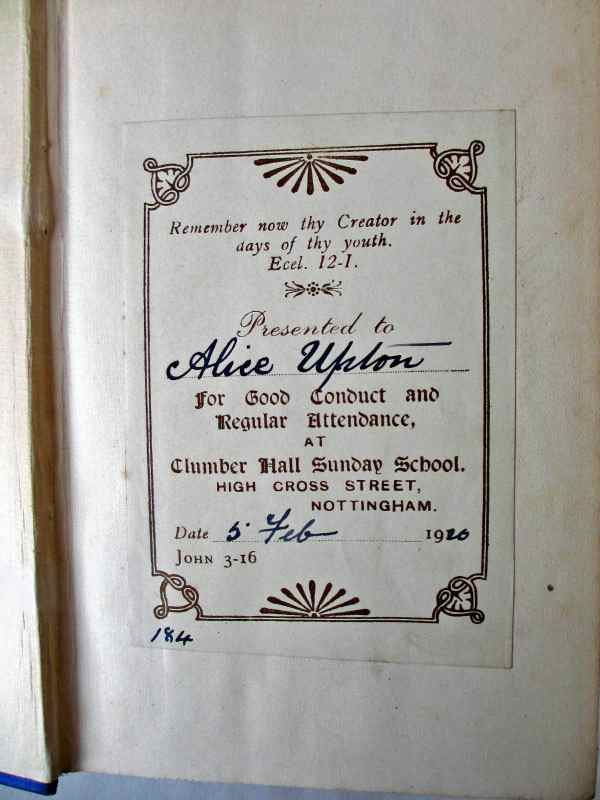 Remember now thy Creator in the
days of thy youth.
Ecel. 12-1.
Presented to
Alice Upton
For Good Conduct and
Regular Attendance,
AT
Clumber Hall Sunday School.
HIGH CROSS STREET,
NOTTINGHAM.
Date 5 Feb 1920
JOHN 3-16
184